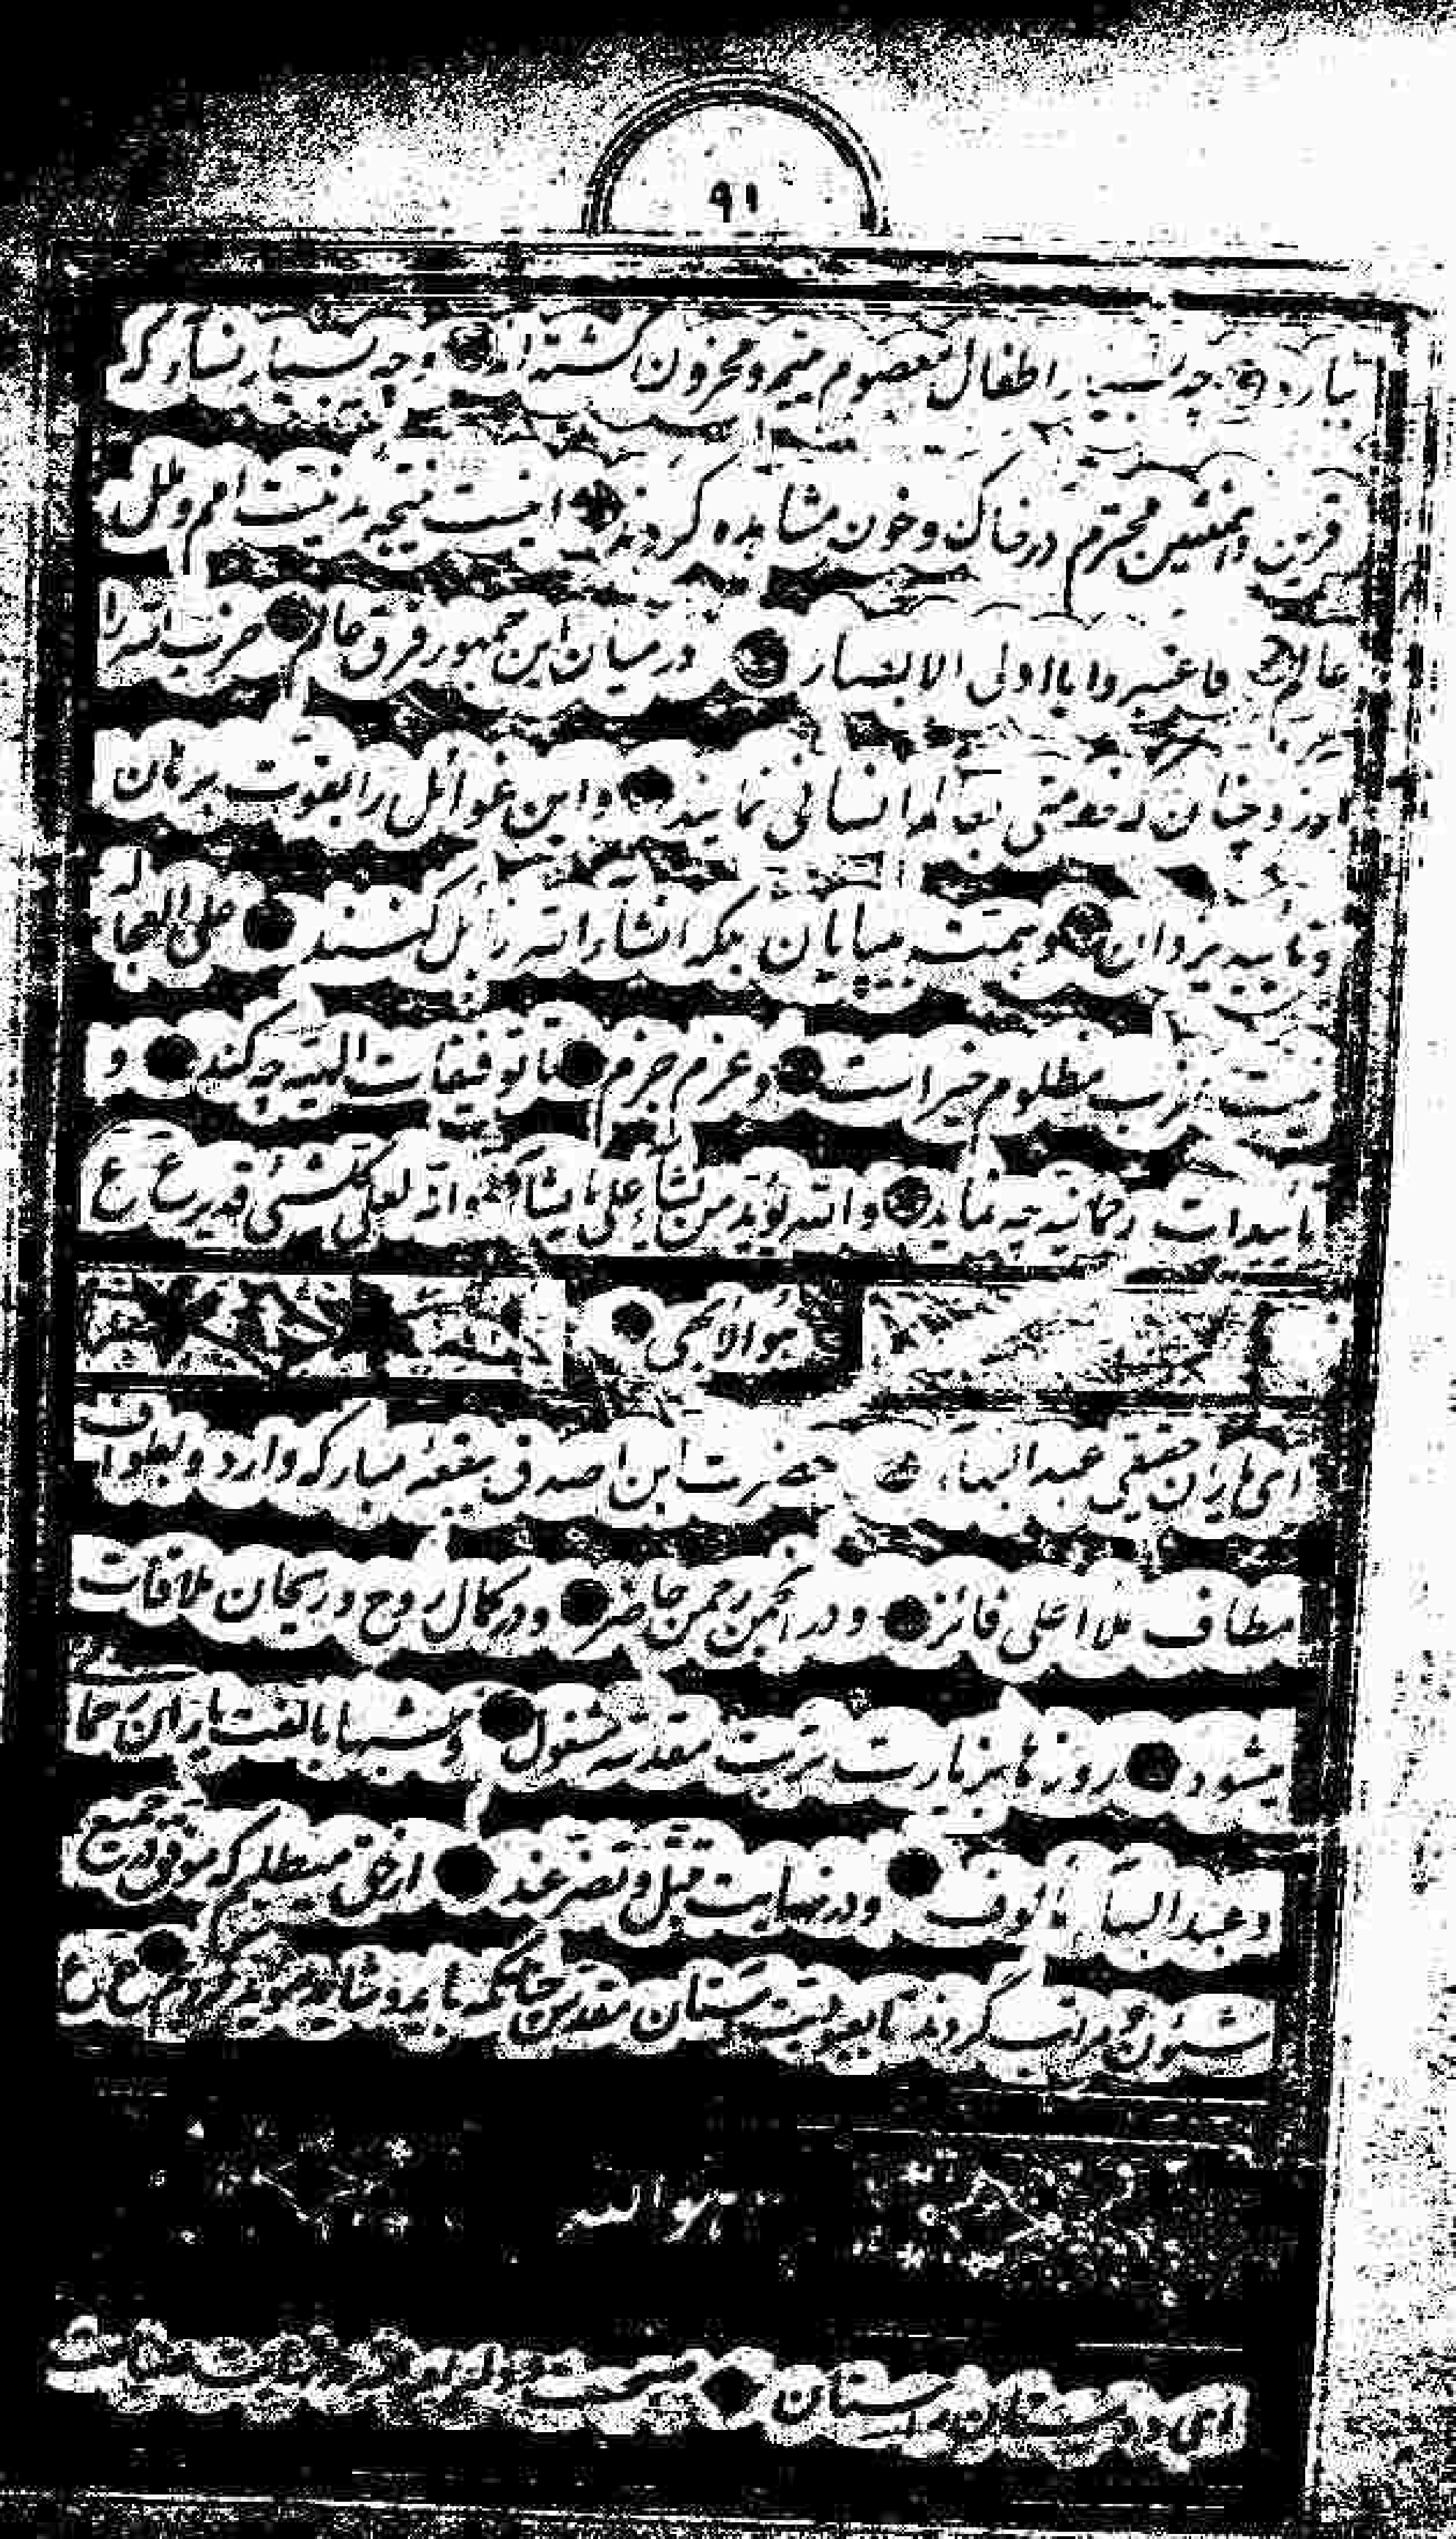 ۹۱
بیارد چه بسیار اطفال معصوم یتیم و محزون گشته‌اند و چه بسیار نساء که
قرین و همنشین محترم در خاک و خون مشاهده کردند اینست نتیجه مدنیت امم و ملل
عالم فاعتبروا یا اولی الابصار در میان این جمهور فرق عالم حزب الله را
چنان که انسانی نمایند و این غوائل را بقوت برهان
و تأیید یزدان و همت بی‌پایان بلکه انشاءالله زائل کنند علی العجاله
نیت حزب مظلوم خیر است و عزم جزم تا توفیقات الهیه چه کند و
تأییدات رحمانیه چه نماید والله یؤید من یشاء علی ما یشاء وانه لعلی کلشیئ قدیر ع ع
هوالابهی
ای یاران حقیقی عبدالبهاء حضرت ابن اصدق ببقعه مبارکه وارد و بطواف
مطاف ملأ اعلی فائز و در انجمن رحمن حاضر و در کمال روح و ریحان ملاقات
میشود روزها بزیارت تربت مقدسه مشغول و شبها بالفت یاران رحمانی
و عبدالبهاء مألوف و در نهایت تبتل و تضرعند از حق میطلبم که موفق در جمیع
شئون و مراتب گردند تا بعبودیت آستان مقدس چنانکه باید و شاید مؤید گردیم ع ع
هوالله
ای دوستان راستان